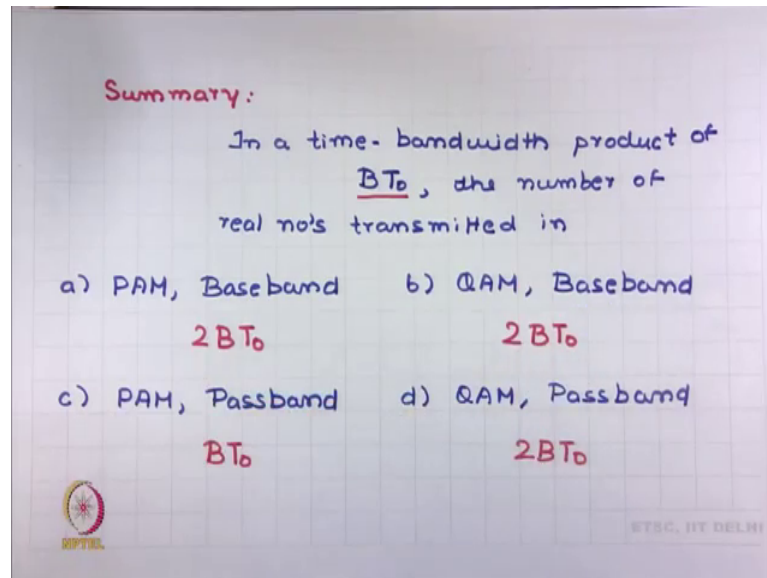 Summary:
In a time-bandwidth product of
BT₀, the number of
real no's transmitted in
a) PAM, Baseband b) QAM, Baseband
2BT₀ 2BT₀
c) PAM, Passband d) QAM, Passband
BT₀ 2BT₀
NPTEL
ETSC, IIT DELHI